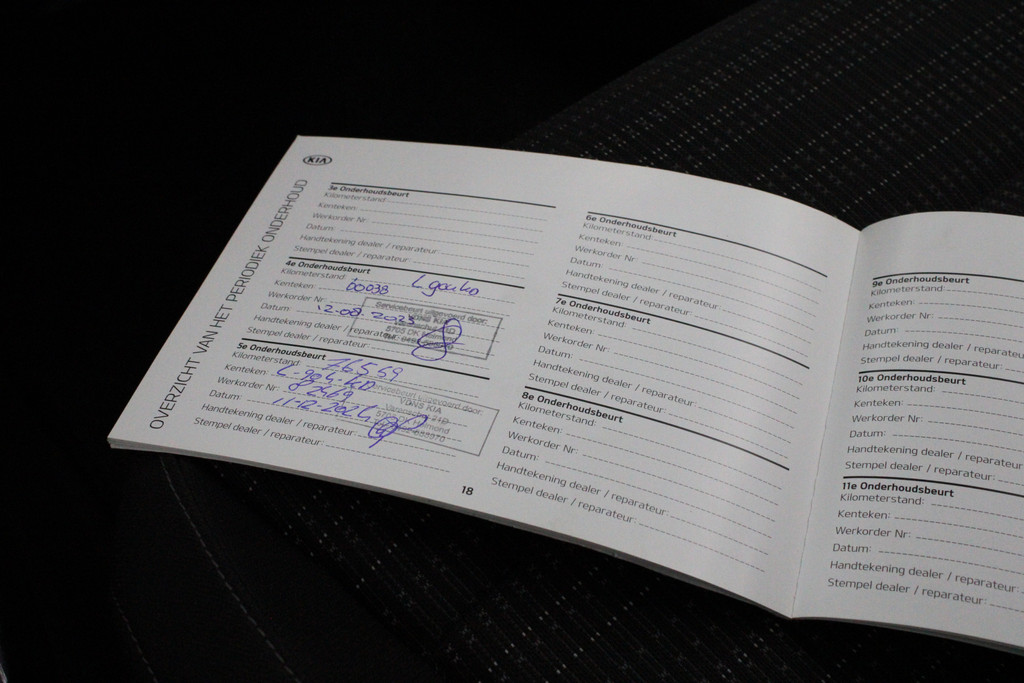 KIA
OVERZICHT VAN HET PERIODIEK ONDERHOUD
3e Onderhoudsbeurt
Kilometerstand:
Kenteken:
Werkorder Nr:
Datum:
Handtekening dealer / reparateur:
Stempel dealer / reparateur:
4e Onderhoudsbeurt
Kilometerstand:
Kenteken: 60038
Werkorder Nr:
Datum: 2-08-2023
Handtekening dealer / reparateur:
Stempel dealer / reparateur:
5e Onderhoudsbeurt
Kilometerstand: 76559
Kenteken:
Werkorder Nr: 82469
Datum: 11-12-2024
Handtekening dealer / reparateur:
Stempel dealer / reparateur:
18
6e Onderhoudsbeurt
Kilometerstand:
Kenteken:
Werkorder Nr:
Datum:
Handtekening dealer / reparateur:
Stempel dealer / reparateur:
7e Onderhoudsbeurt
Kilometerstand:
Kenteken:
Werkorder Nr:
Datum:
Handtekening dealer / reparateur:
Stempel dealer / reparateur:
8e Onderhoudsbeurt
Kilometerstand:
Kenteken:
Werkorder Nr:
Datum:
Handtekening dealer / reparateur:
Stempel dealer / reparateur:
9e Onderhoudsbeurt
Kilometerstand:
Kenteken:
Werkorder Nr:
Datum:
Handtekening dealer / reparateur:
Stempel dealer / reparateur:
10e Onderhoudsbeurt
Kilometerstand:
Kenteken:
Werkorder Nr:
Datum:
Handtekening dealer / reparateur:
Stempel dealer / reparateur:
11e Onderhoudsbeurt
Kilometerstand:
Kenteken:
Werkorder Nr:
Datum:
Handtekening dealer / reparateur:
Stempel dealer / reparateur: